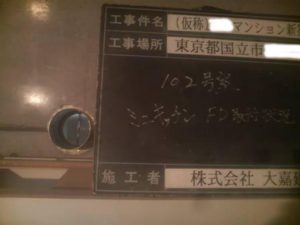 工事件名 (仮称 マンション新
工事場所 東京都国立市
102号室
ミニキッチン FD取付状況
施工者 株式会社 大嘉